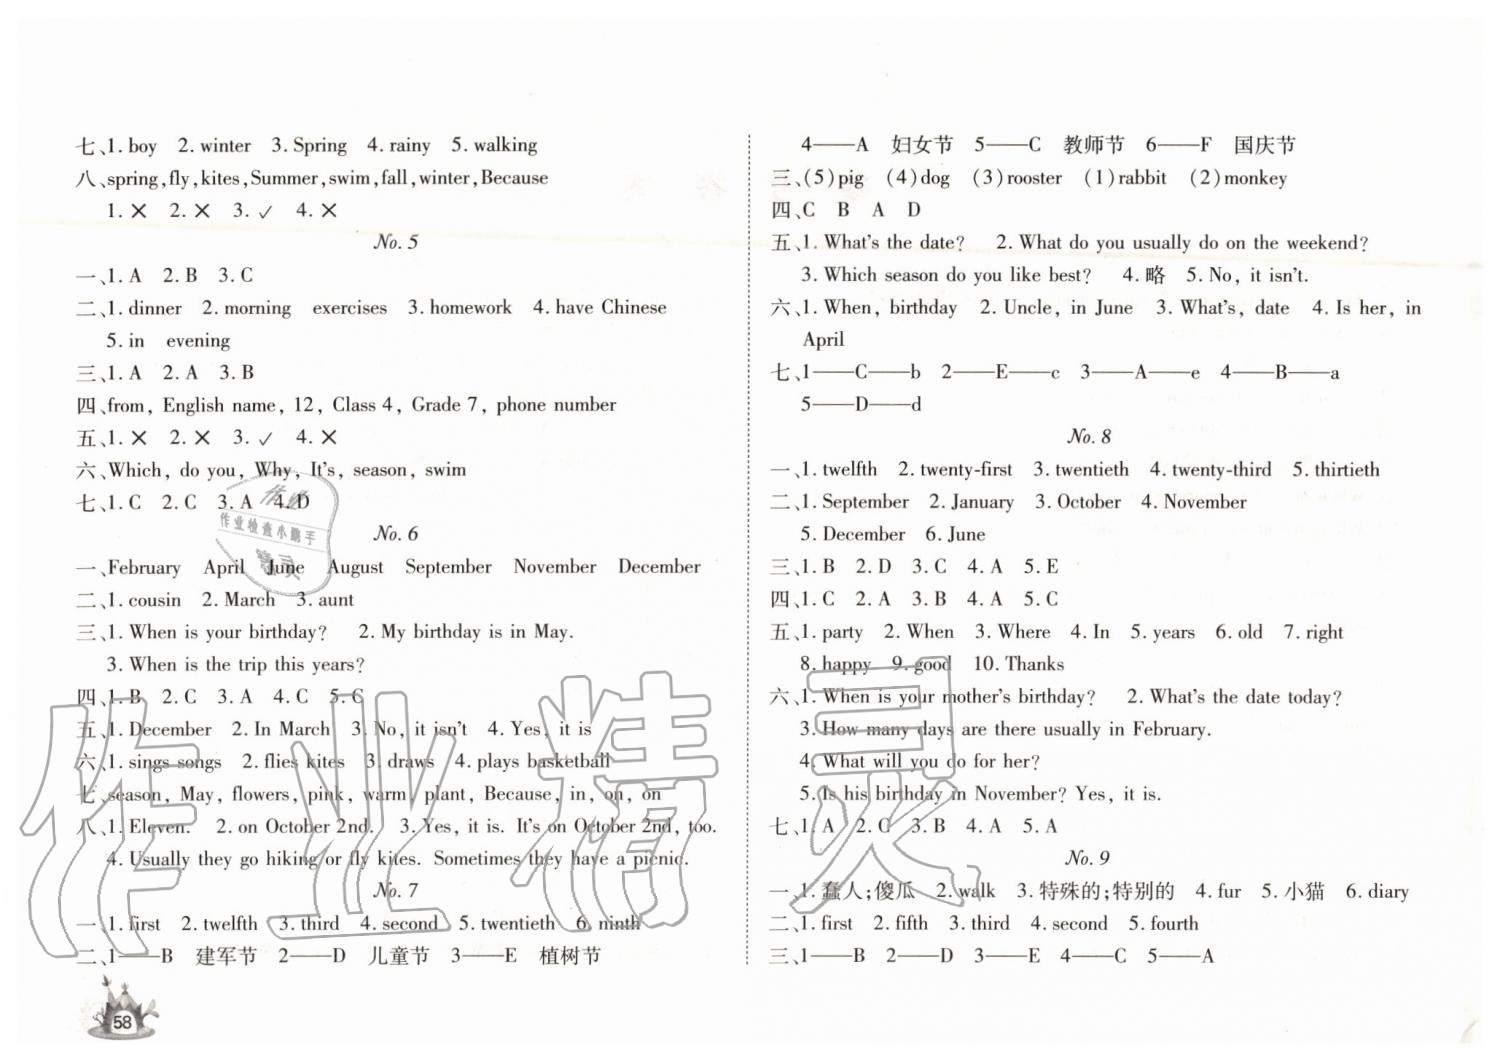 七、1. boy 2. winter 3. Spring 4. rainy 5. walking
八、spring, fly, kites, Summer, swim, fall, winter, Because
1. × 2. × 3. ✓ 4. ×
No. 5
一、1. A 2. B 3. C
二、1. dinner 2. morning exercises 3. homework 4. have Chinese
5. in evening
三、1. A 2. A 3. B
四、from, English name, 12, Class 4, Grade 7, phone number
五、1. × 2. × 3. ✓ 4. ×
六、Which, do you, Why, It's, season, swim
七、1. C 2. C 3. A 4. D
No. 6
一、February April June August September November December
二、1. cousin 2. March 3. aunt
三、1. When is your birthday? 2. My birthday is in May.
3. When is the trip this years?
四、1. B 2. C 3. A 4. C 5. C
五、1. December 2. In March 3. No, it isn't 4. Yes, it is
六、1. sings songs 2. flies kites 3. draws 4. plays basketball
七、season, May, flowers, pink, warm, plant, Because, in, on, on
八、1. Eleven. 2. on October 2nd. 3. Yes, it is. It's on October 2nd, too.
4. Usually they go hiking or fly kites. Sometimes they have a picnic.
No. 7
一、1. first 2. twelfth 3. third 4. second 5. twentieth 6. ninth
二、1——B 建军节 2——D 儿童节 3——E 植树节
58
4——A 妇女节 5——C 教师节 6——F 国庆节
三、(5)pig (4)dog (3)rooster (1)rabbit (2)monkey
四、C B A D
五、1. What's the date? 2. What do you usually do on the weekend?
3. Which season do you like best? 4. 略 5. No, it isn't.
六、1. When, birthday 2. Uncle, in June 3. What's, date 4. Is her, in
April
七、1——C——b 2——E——c 3——A——e 4——B——a
5——D——d
No. 8
一、1. twelfth 2. twenty-first 3. twentieth 4. twenty-third 5. thirtieth
二、1. September 2. January 3. October 4. November
5. December 6. June
三、1. B 2. D 3. C 4. A 5. E
四、1. C 2. A 3. B 4. A 5. C
五、1. party 2. When 3. Where 4. In 5. years 6. old 7. right
8. happy 9. good 10. Thanks
六、1. When is your mother's birthday? 2. What's the date today?
3. How many days are there usually in February.
4. What will you do for her?
5. Is his birthday in November? Yes, it is.
七、1. A 2. C 3. B 4. A 5. A
No. 9
一、1. 蠢人;傻瓜 2. walk 3. 特殊的;特别的 4. fur 5. 小猫 6. diary
二、1. first 2. fifth 3. third 4. second 5. fourth
三、1——B 2——D 3——E 4——C 5——A
作业精灵
作业检查小帮手